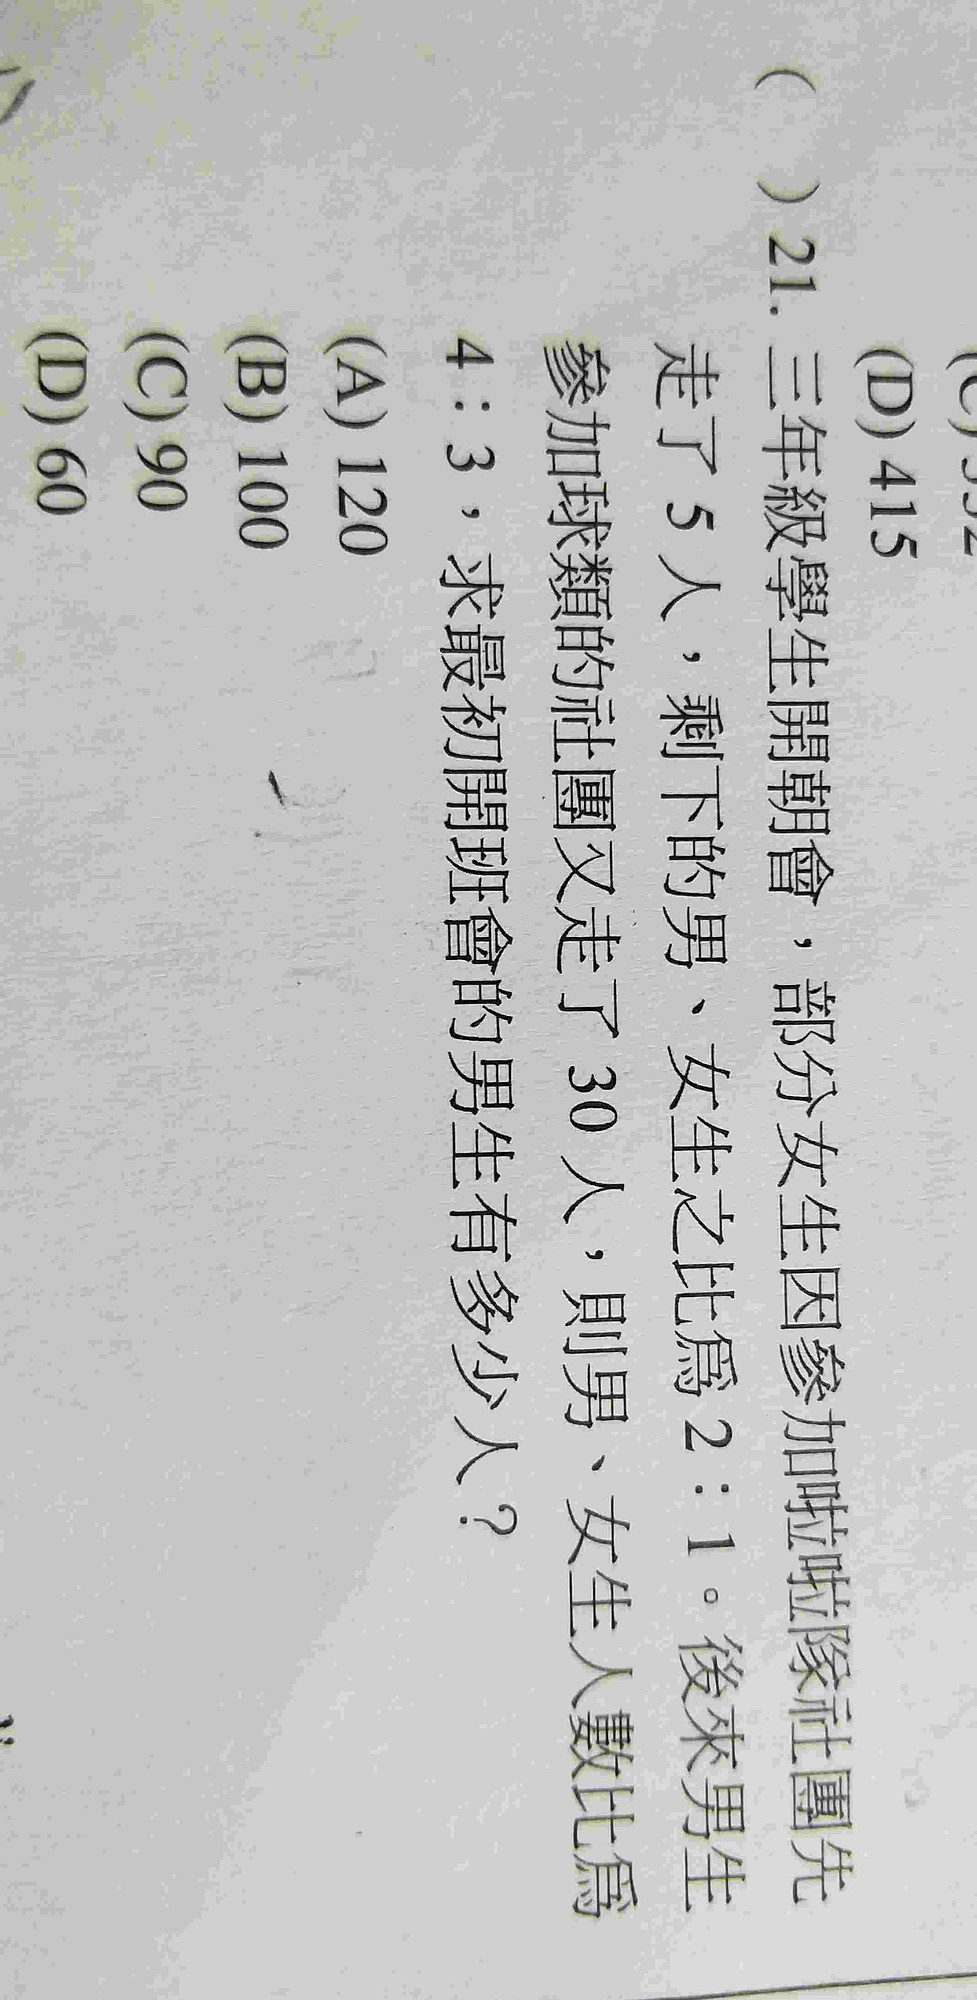 (D) 415
(　) 21. 三年級學生開朝會，部分女生因參加啦啦隊社團先
走了 5 人，剩下的男、女生之比為 2：1。後來男生
參加球類的社團又走了 30 人，則男、女生人數比為
4：3，求最初開班會的男生有多少人？
(A) 120
(B) 100
(C) 90
(D) 60